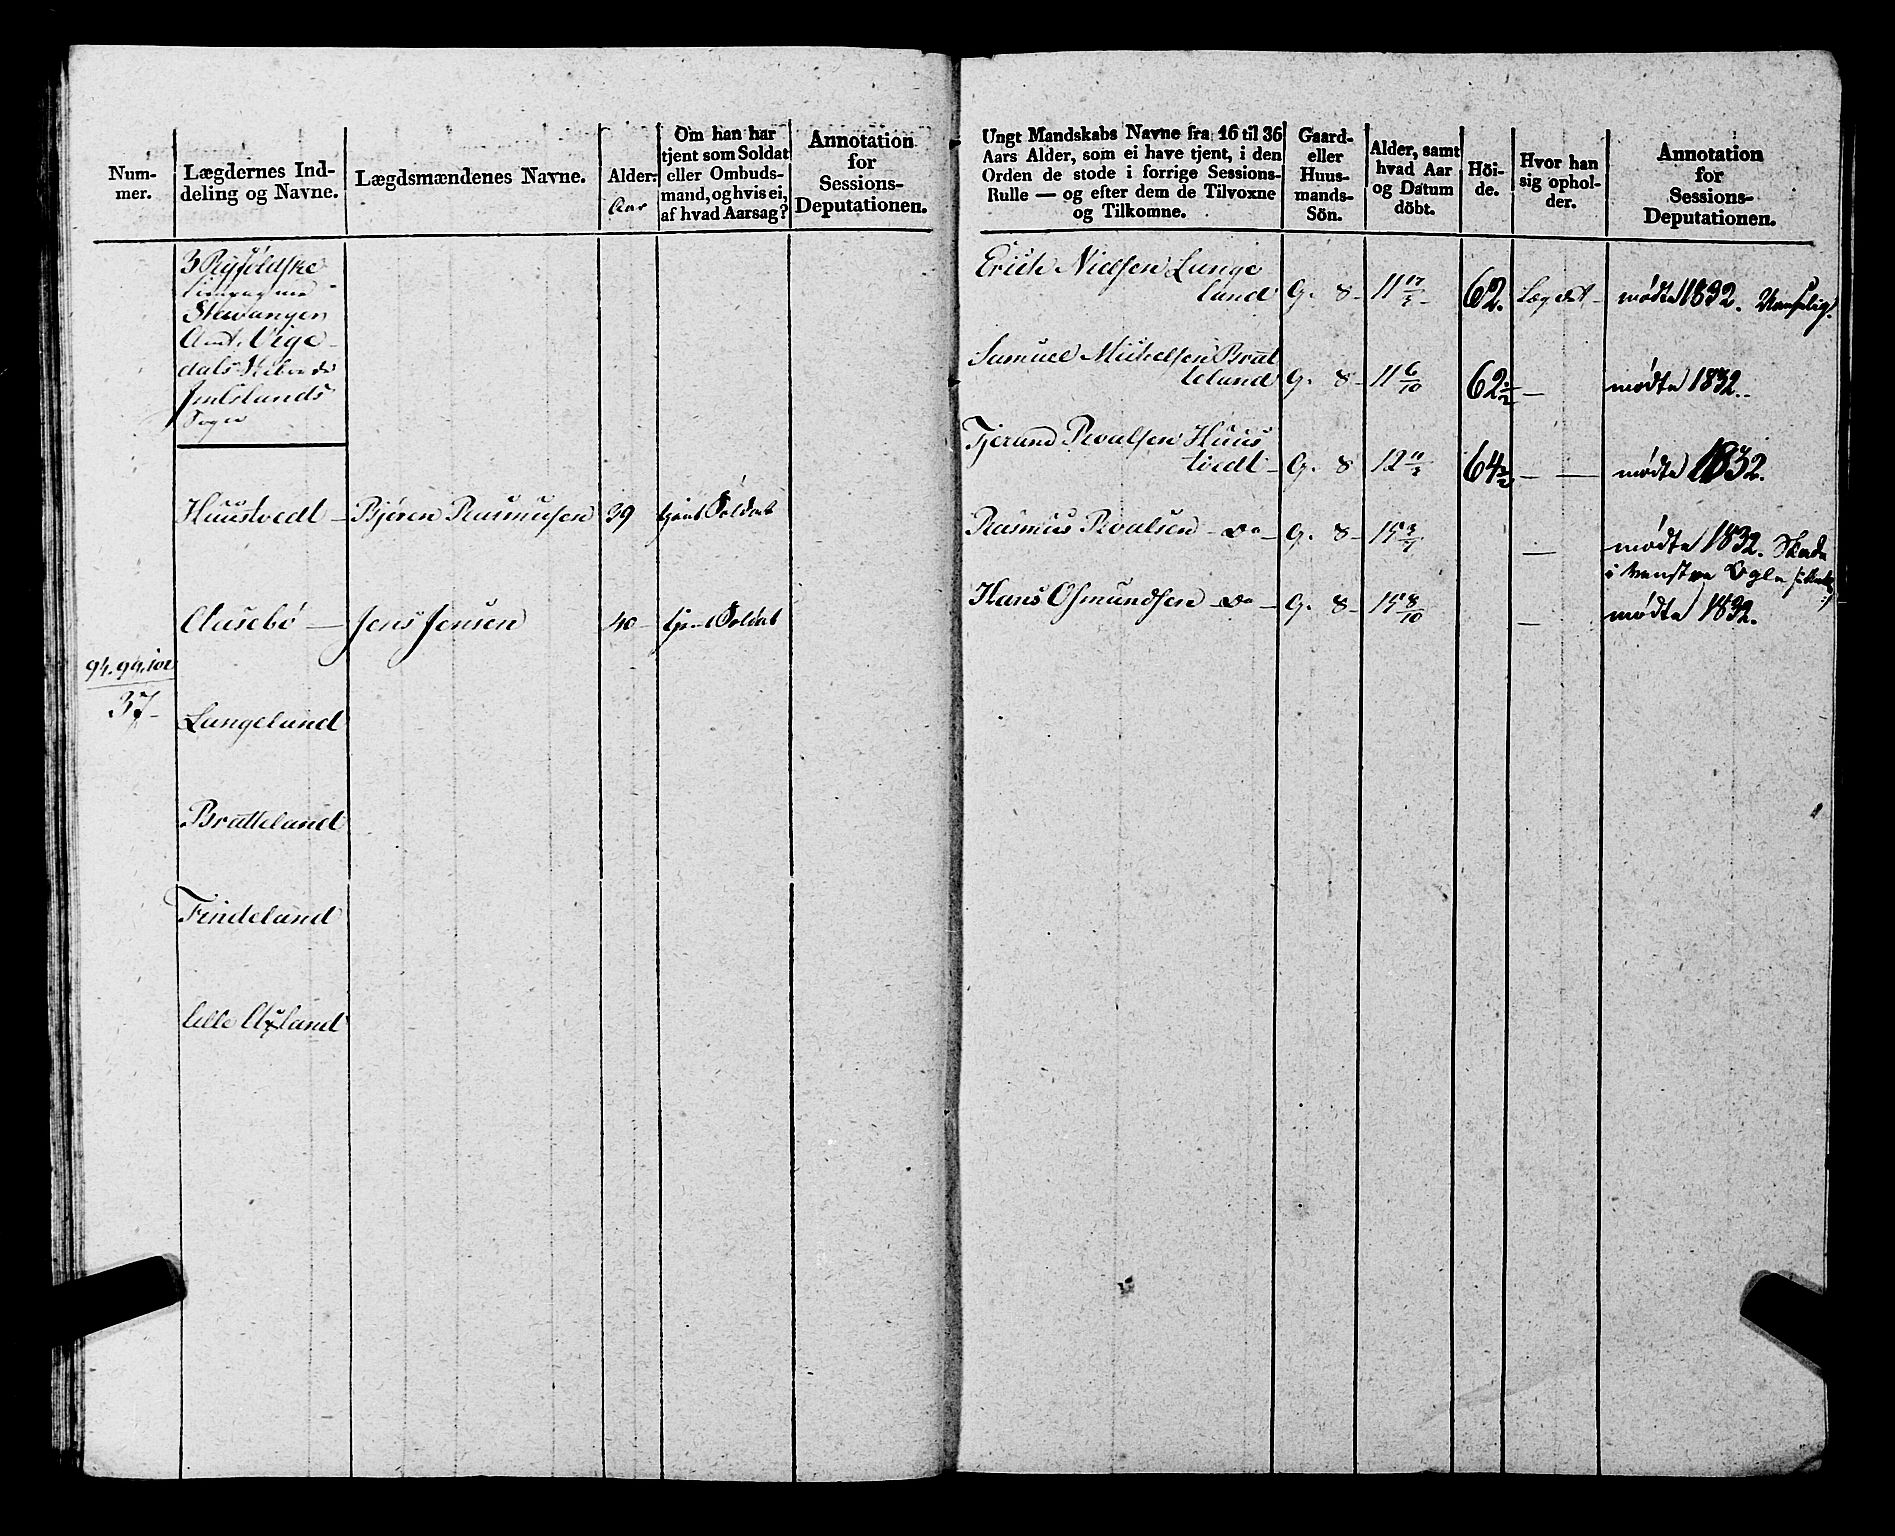 Num-
mer.
Lægdernes Ind-
deling og Navne.
Lægdsmændenes Navne.
Alder.
Aar
Om han har
tjent som Soldat
eller Ombuds-
mand, og hvis ei,
af hvad Aarsag?
Annotation
for
Sessions-
Deputationen.
3 Ryfÿldske
Stavanger
Amt. Vige-
dals
Imslands
Sogn
Huustvedt — Bjøren Rasmusen 39 tjent Soldat
Aasebø — Jens Jensen 40 — tjent Soldat
94. 94. 101
37 —
Langeland
Bratteland
Findeland
Lille Asland
Ungt Mandskabs Navne fra 16 til 36
Aars Alder, som ei have tjent, i den
Orden de stode i forrige Sessions-
Rulle — og efter dem de Tilvoxne
og Tilkomne.
Gaard-
eller
Huus-
mands-
Sön.
Alder, samt
hvad Aar
og Datum
döbt.
Höi-
de.
Hvor han
sig ophol-
der.
Annotation
for
Sessions-
Deputationen.
Erich Nielsen Lange
land G. 8 — 11 17/3 — 62. Lægdet — mødte 1832. Vanselig.
Samuel Michelsen Brat
teland G. 8 — 11 6/10 62 1/2 — mødte 1832.
Tjerand Roalsen Huus
tvedt — G. 8 12 11/3 64 3/2 — — mødte 1832.
Rasmus Roalsen — do — G. 8 — 15 3/7 — mødte 1832. Skade
i venstre
Hans Osmundsen — do — G. 8 — 15 8/10 — mødte 1832.